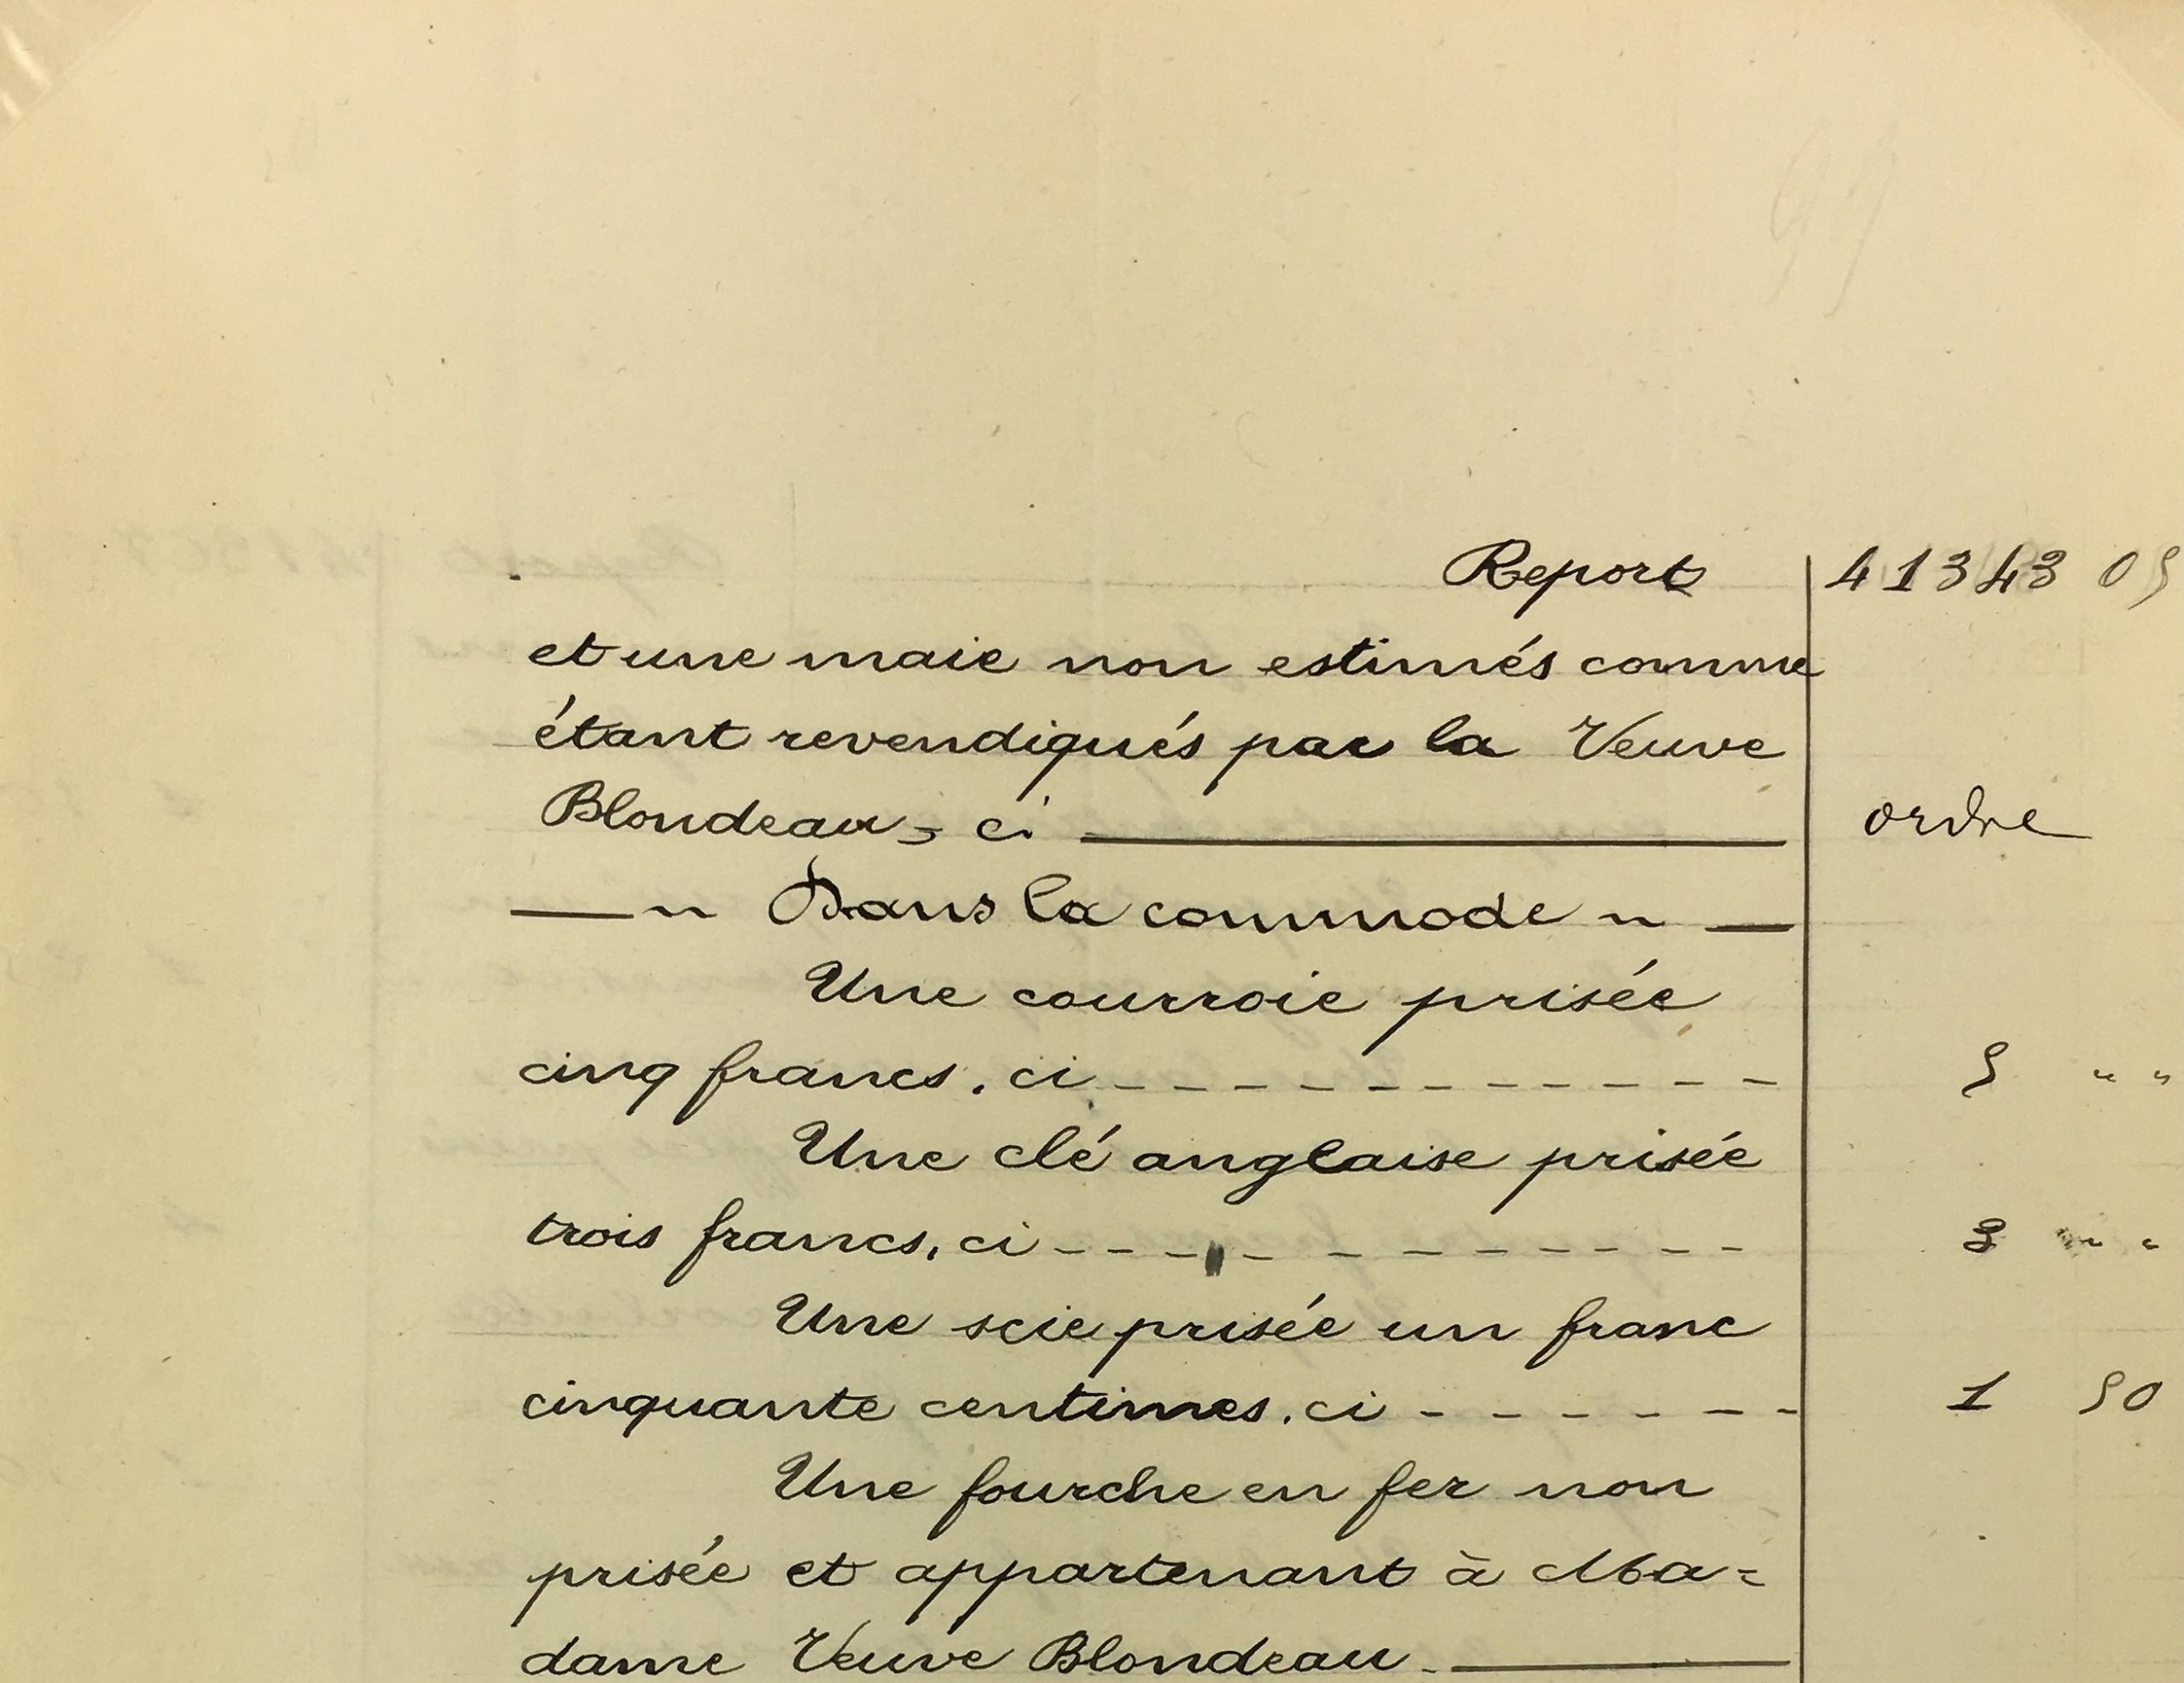 99
Report 41343 05
et une maie non estimés comme
étant revendiqués par la Veuve
Blondeau, ci ordre
" Dans la commode "
Une courroie prisée
cinq francs. ci 5 " "
Une clé anglaise prisée
trois francs, ci 3 " "
Une scie prisée un franc
cinquante centimes. ci 1 50
Une fourche en fer non
prisée et appartenant à Ma=
dame Veuve Blondeau.